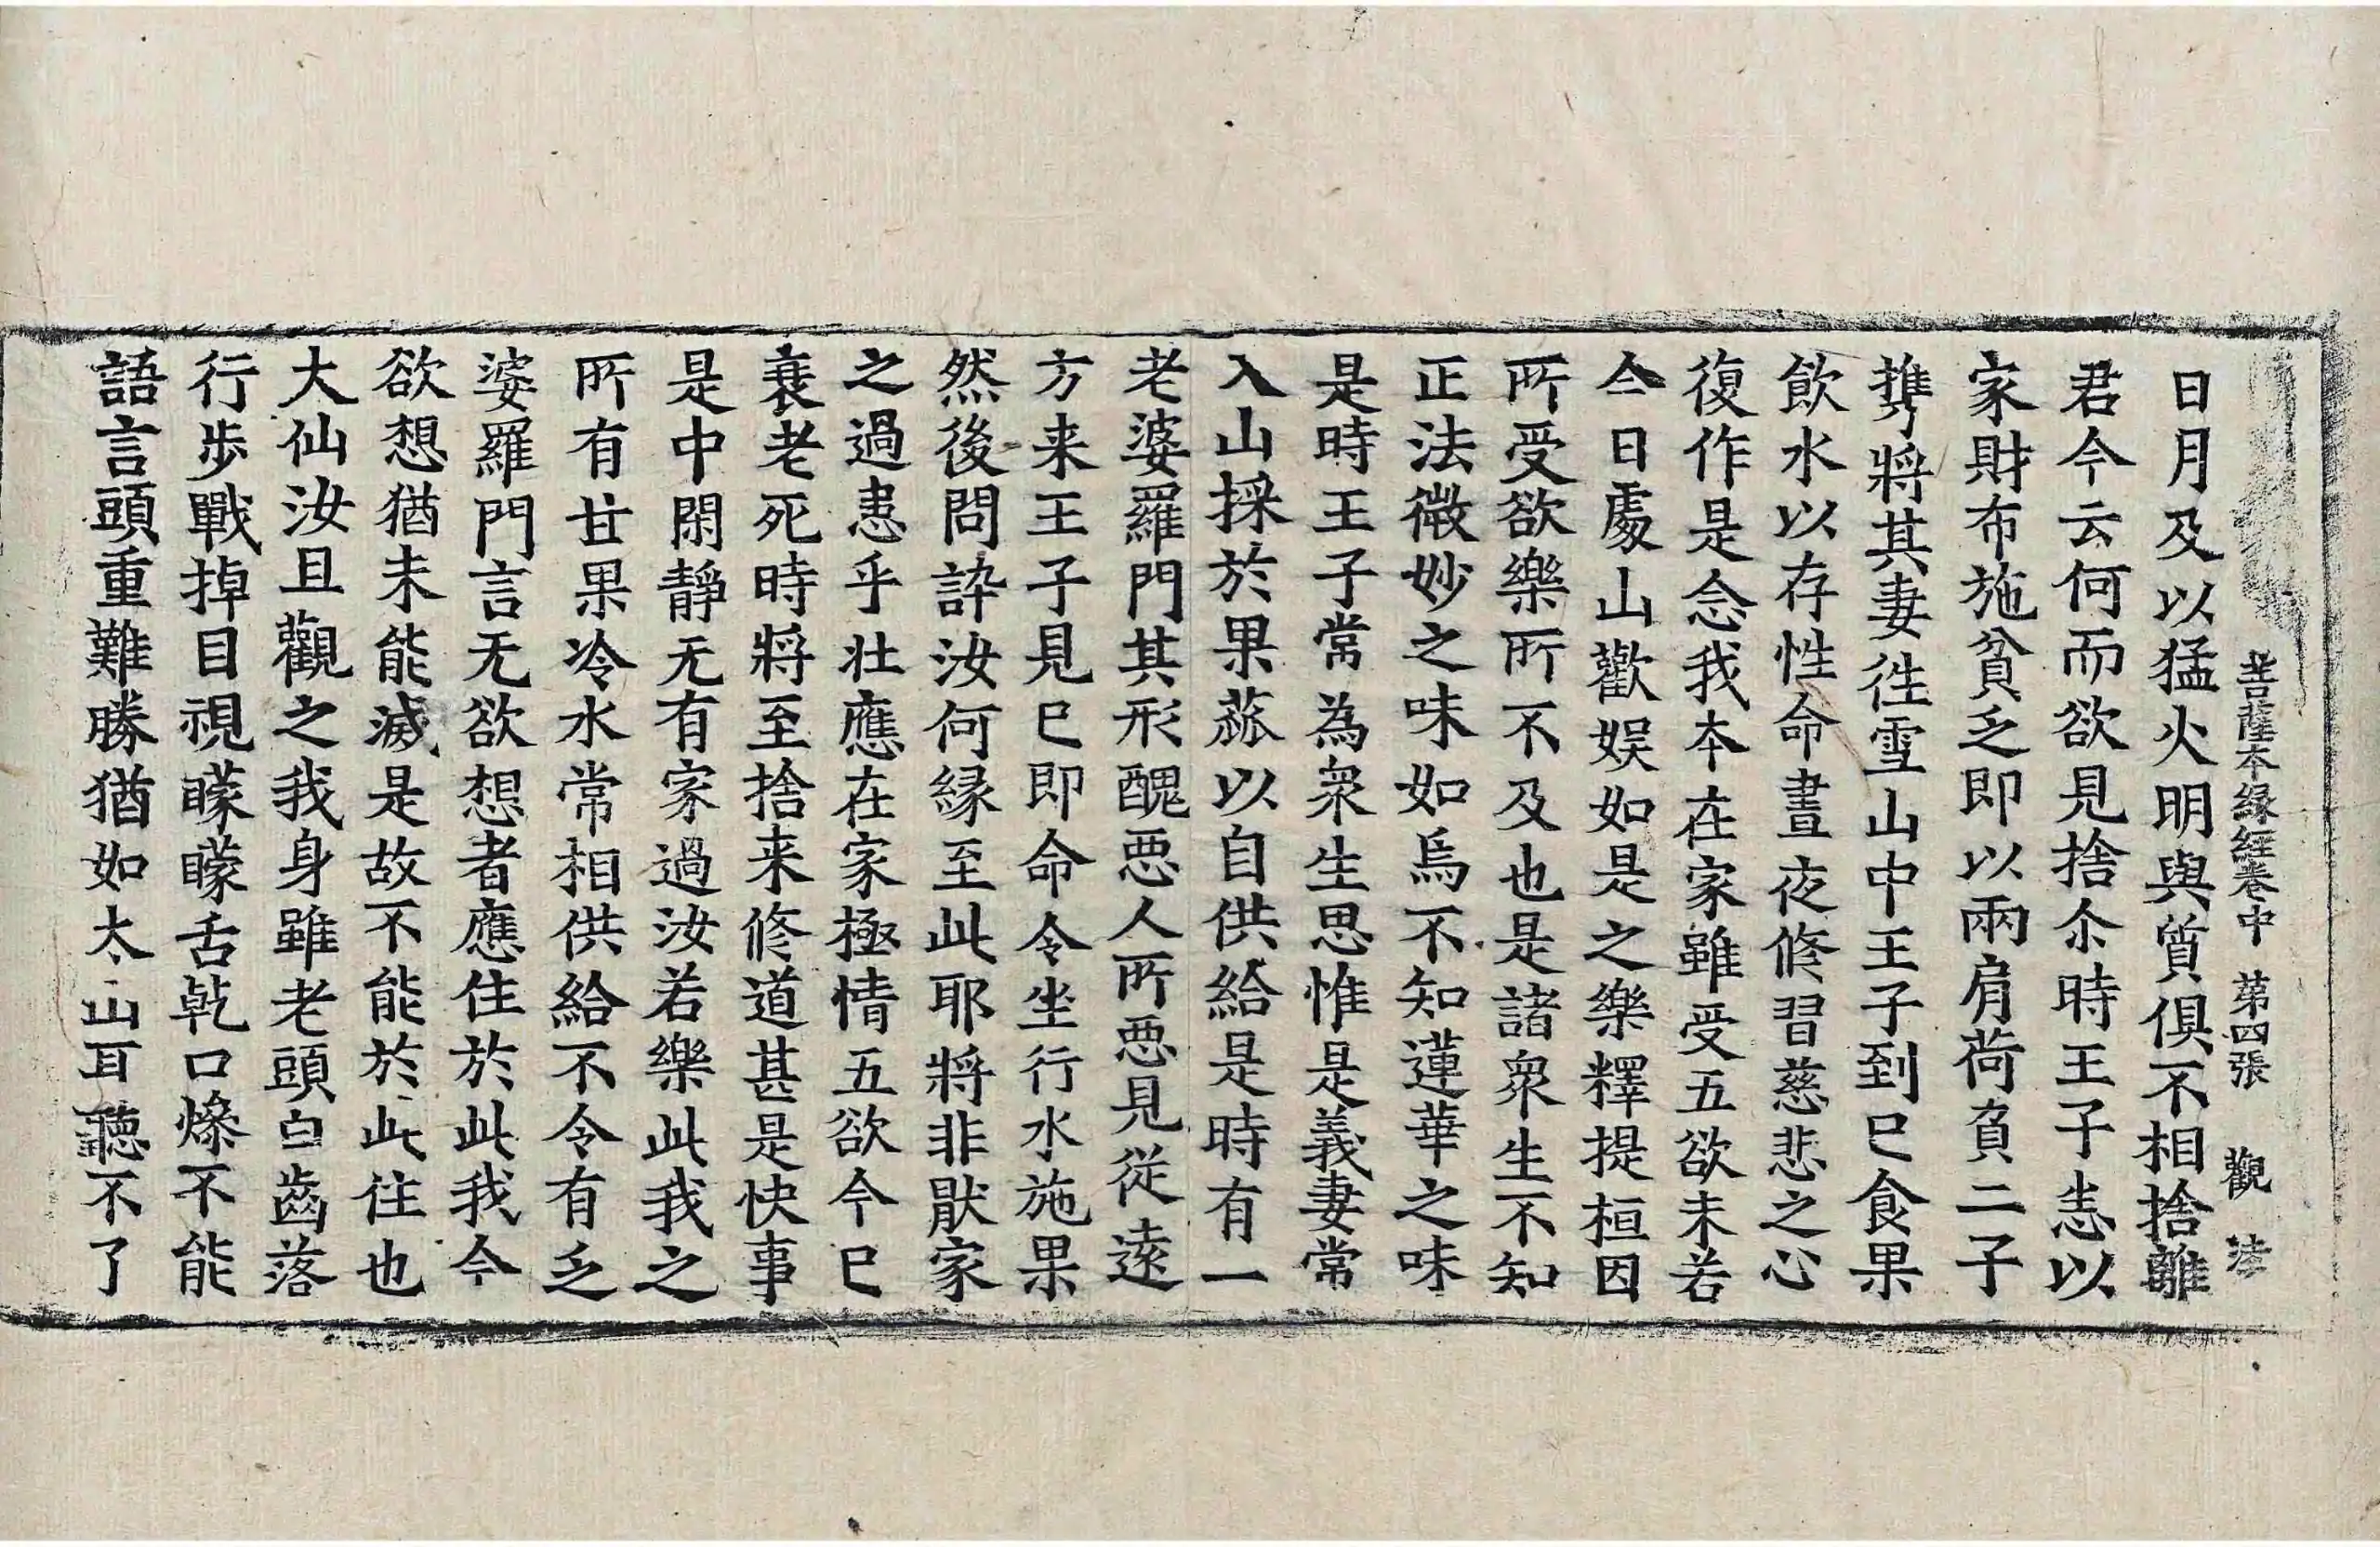 菩薩本緣經卷中 第四張 觀 法
日月及以猛火明與質俱不相捨離
君今云何而欲見捨尒時王子志以
家財布施貧乏即以兩肩荷負二子
携將其妻徃雪山中王子到已食果
飲水以存性命晝夜修習慈悲之心
復作是念我本在家雖受五欲未若
今日處山歡娱如是之樂釋提桓因
所受欲樂所不及也是諸衆生不知
正法微妙之味如烏不知蓮華之味
是時王子常為衆生思惟是義妻常
入山採於果蓏以自供給是時有一
老婆羅門其形醜惡人所惡見從遠
方来王子見已即命令坐行水施果
然後問訊汝何緣至此耶將非猒家
之過患乎壯應在家極情五欲今已
衰老死時將至捨来修道甚是快事
是中閑靜无有家過汝若樂此我之
所有甘果冷水常相供給不令有乏
婆羅門言无欲想者應住於此我今
欲想猶未能滅是故不能於此住也
大仙汝且觀之我身雖老頭白齒落
行步戰掉目視矇矇舌乾口燥不能
語言頭重難勝猶如太山耳聽不了